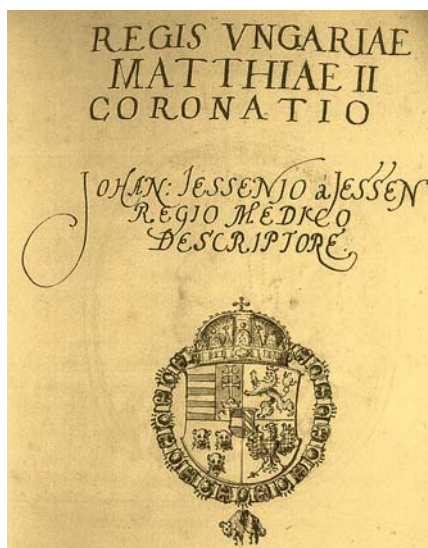 REGIS VNGARIAE
MATTHIAE II
CORONATIO
JOHAN: JESSENIO à JESSEN
REGIO MEDICO
DESCRIPTORE.